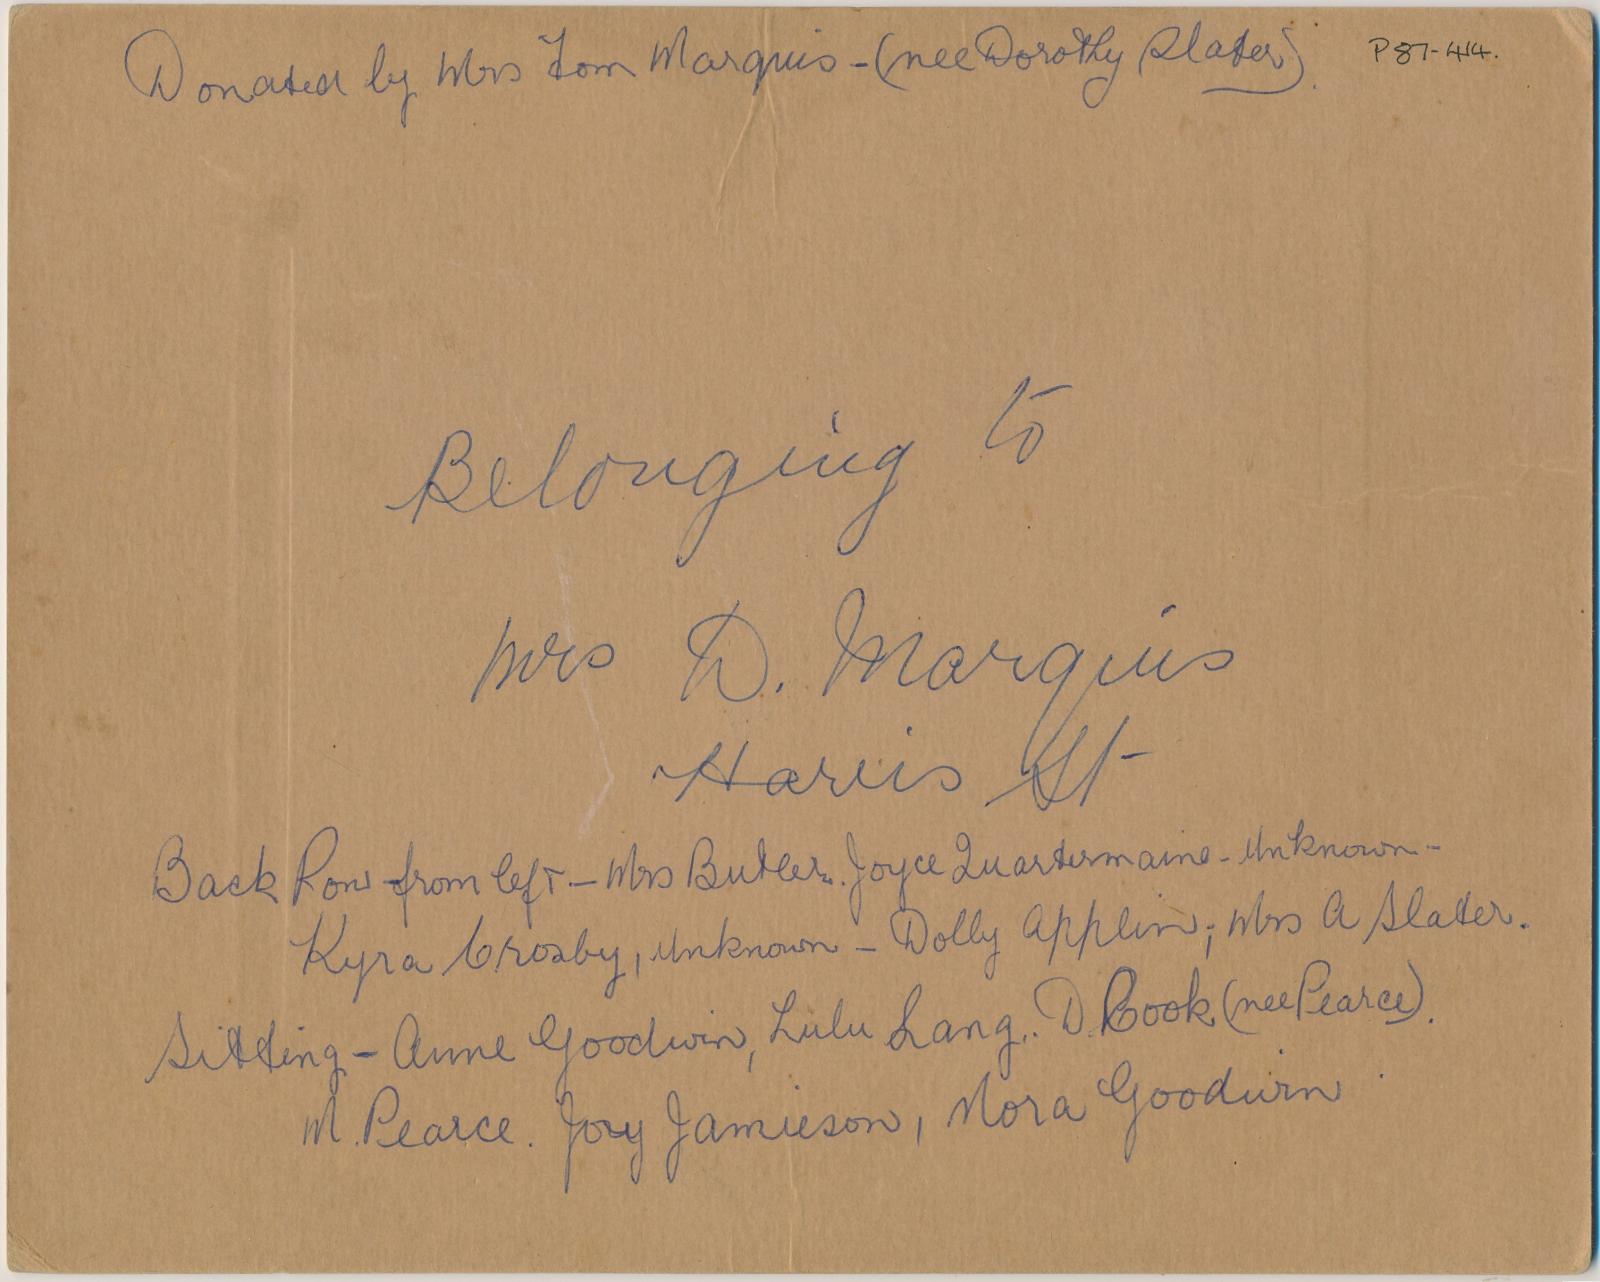 Donated by Mrs Tom Marquis - (nee Dorothy Slater). P87-414.
Belonging to
Mrs D. Marquis
Harris St
Back Row from left - Mrs Butler. Joyce Quartermaine - Unknown -
Kyra Crosby, Unknown - Dolly Applin; Mrs A Slater.
Sitting - Anne Goodwin, Lulu Lang. D. Rook (nee Pearce).
M. Pearce. Joy Jamieson, Nora Goodwin